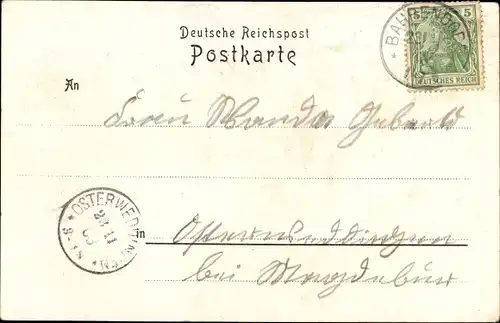 Deutsche Reichspost
Postkarte
5
DEUTSCHES REICH
An
Frau Wanda
OSTERWEDDINGEN
23 11
in Osterweddingen
bei Magdeburg